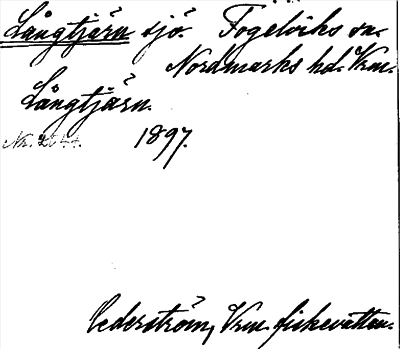 Långtjärn sjö. Fogelviks sn.
Nordmarks hd. Vrm.
Långtjärn.
1897.
Cederström, Vrm. fiskevatten.